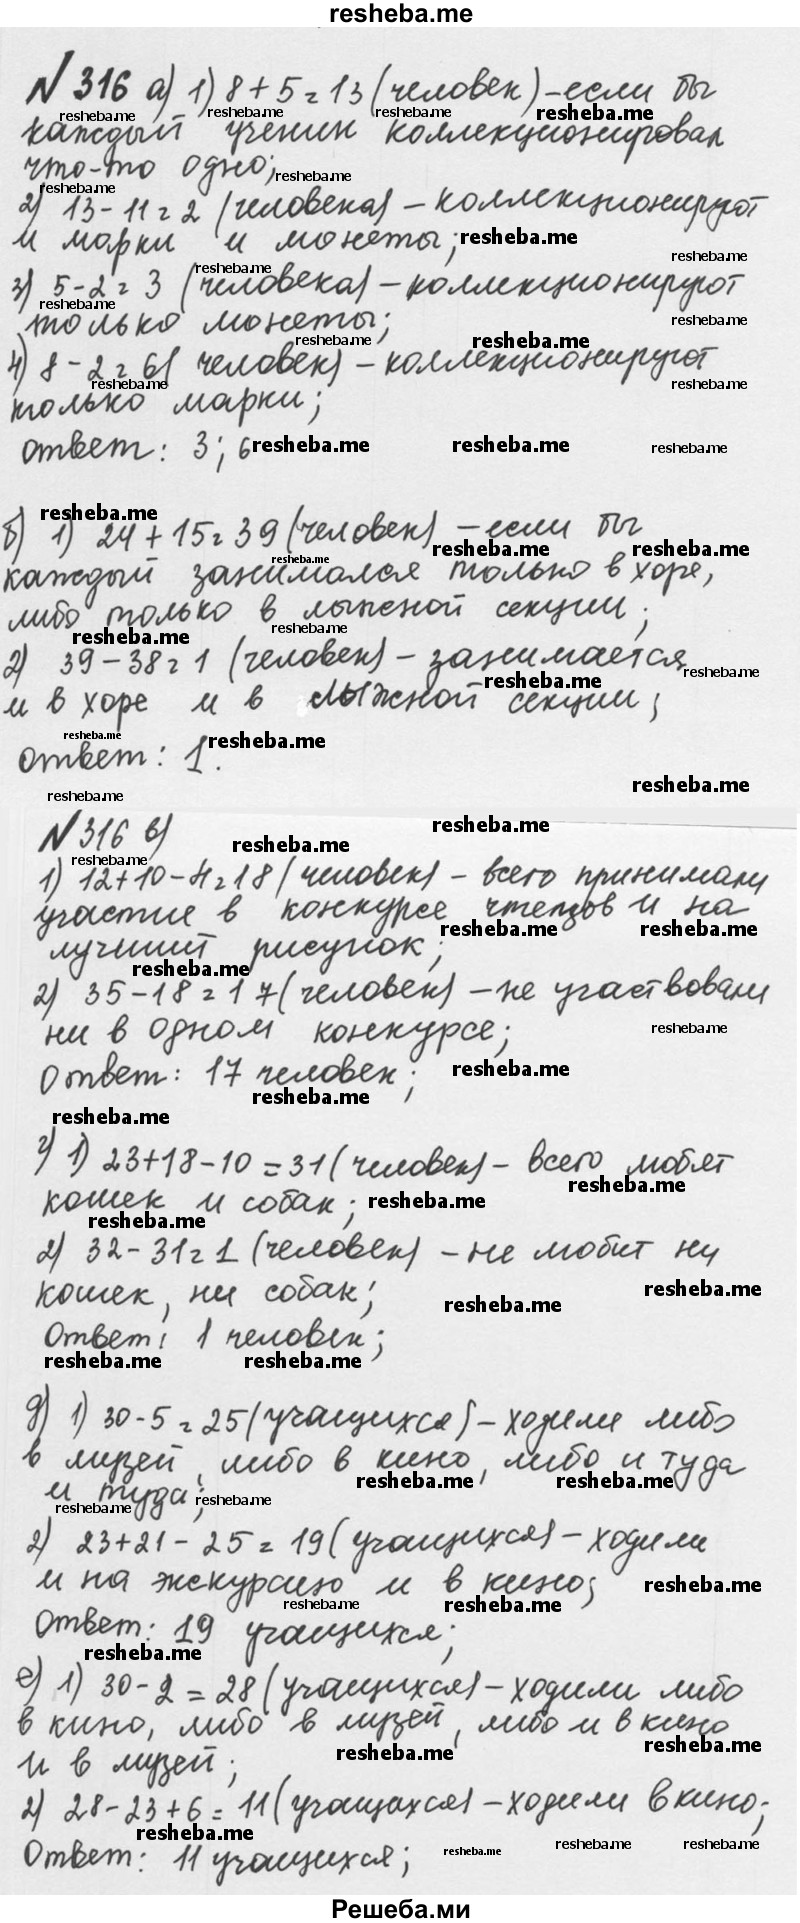 resheba.me
№316 а) 1) 8+5=13 (человек) – если бы
каждый ученик коллекционировал
что-то одно;
2) 13-11=2 (человека) – коллекционируют
и марки и монеты;
3) 5-2=3 (человека) – коллекционируют
только монеты;
4) 8-2=6 (человек) – коллекционируют
только марки;
ответ: 3; 6
б) 1) 24+15=39 (человек) – если бы
каждый занимался только в хоре,
либо только в лыжной секции;
2) 39-38=1 (человек) – занимается
и в хоре и в лыжной секции;
ответ: 1.
№316 в)
1) 12+10-4=18 (человек) – всего принимали
участие в конкурсе чтецов и на
лучший рисунок;
2) 35-18=17 (человек) – не участвовали
ни в одном конкурсе;
Ответ: 17 человек;
г) 1) 23+18-10=31 (человек) – всего любят
кошек и собак;
2) 32-31=1 (человек) – не любит ни
кошек, ни собак;
Ответ: 1 человек;
д) 1) 30-5=25 (учащихся) – ходили либо
в музей, либо в кино, либо и туда
и туда;
2) 23+21-25=19 (учащихся) – ходили
и на экскурсию и в кино;
Ответ: 19 учащихся;
е) 1) 30-2=28 (учащихся) – ходили либо
в кино, либо в музей, либо и в кино
и в музей;
2) 28-23+6=11 (учащахся) – ходили в кино;
Ответ: 11 учащихся;
Решеба.ми